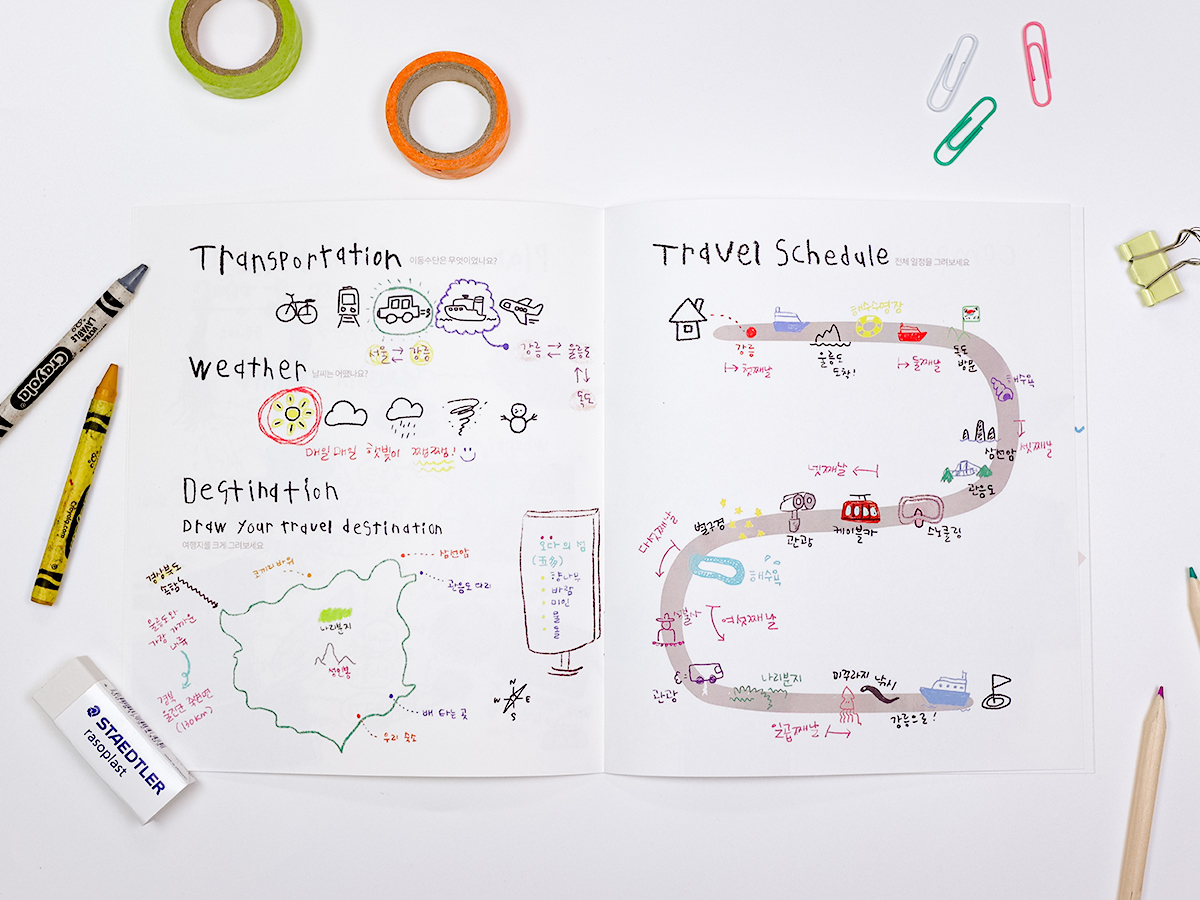 Transportation 이동수단은 무엇이었나요?
서울 ⇄ 강릉
강릉 ⇄ 울릉도
독도
Weather 날씨는 어땠나요?
매일매일 햇빛이 쨍쨍!
Destination
Draw your travel destination
여행지를 크게 그려보세요
경상북도
속함
울릉도와
가장 가까운
내륙
경북
울진군 죽변면
(130km)
코끼리 바위
삼선암
관음도 다리
나리분지
성인봉
배 타는 곳
우리 숙소
오다의 섬
(五多)
향나무
바람
미인
물
돌
N
W E
S
Travel Schedule 전체 일정을 그려보세요
강릉
첫째날
울릉도
도착!
해수수영장
둘째날
독도
방문
해수욕
셋째날
삼선암
관음도
넷째날
스노쿨링
케이블카
관광
별구경
다섯째날
해수욕
여섯째날
관광
나리분지
일곱째날
낚시
강릉으로!
Crayola
ULTRA-CLEAN
WASHABLE
Crayola
STAEDTLER
rasoplast